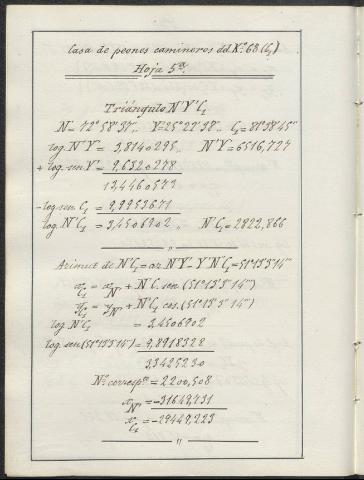 Casa de peones camineros del K.º 68 (C₁)
Hoja 5ª
Triángulo N'Y'C₁
N'= 72°58'37",, Y'=25°22'38",, C₁= 81°38'45"
log. N'Y' = 3,8140295,, N'Y'= 6516,727
+ log. sen Y' = 9,6320278
13,4460573
- log. sen C₁ = 9,9953671
log. N'C₁ = 3,4506902,, N'C₁= 2822,866
"
Azimut de N'C₁ = az. N'Y' - Y'N'C₁ = 51°13'314"
x C₁ = x N' + N'C₁ sen (51°13'314")
y C₁ = y N' + N'C₁ cos. (51°13'314")
log. N'C₁ = 3,4506902
log. sen (51°13'314") = 9,8918328
3,3425230
Nº corresp.te = 2200,508
x N' = -31649,731
x C₁ = -29449,223
"